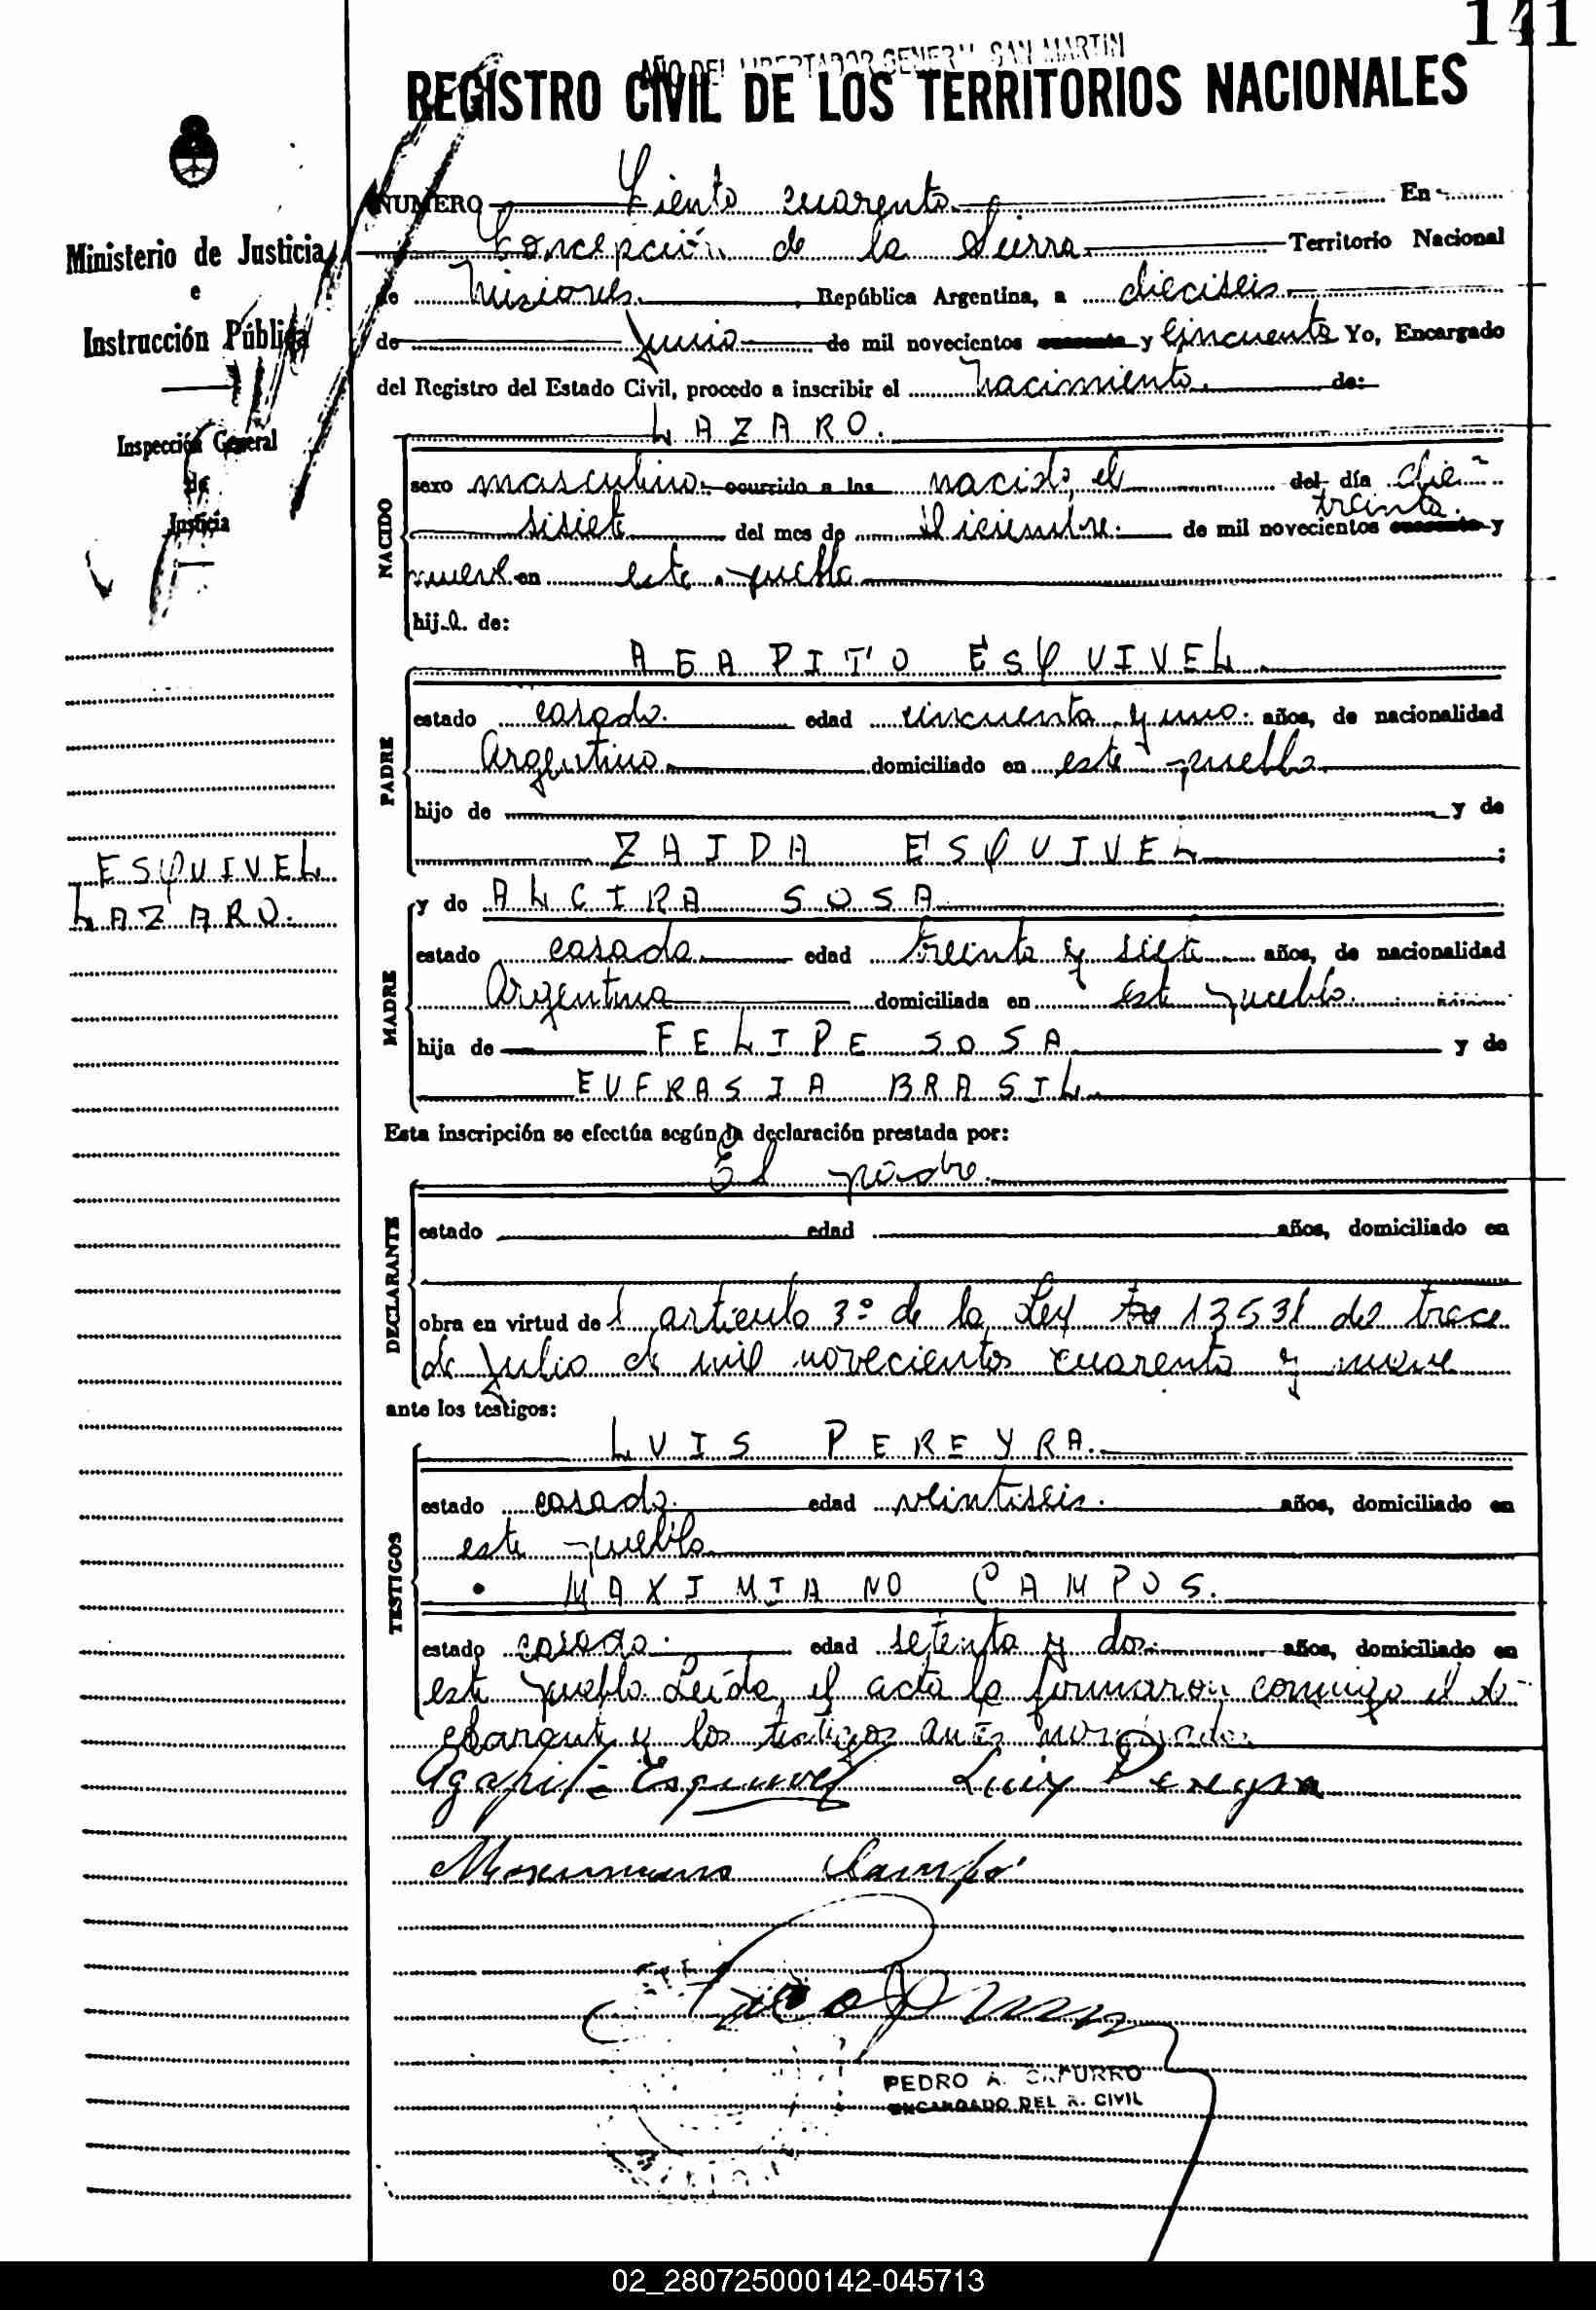 141
AÑO DEL LIBERTADOR GENERAL SAN MARTIN
REGISTRO CIVIL DE LOS TERRITORIOS NACIONALES
Ministerio de Justicia
e
Instrucción Pública
Inspección General
de
Justicia
ESQUIVEL
LAZARO.
NUMERO Ciento cuarenta En
Concepción de la Sierra Territorio Nacional
de Misiones República Argentina, a dieciseis
de Junio de mil novecientos cuarenta y Cincuenta Yo, Encargado
del Registro del Estado Civil, procedo a inscribir el nacimiento. de:
LAZARO.
NACIDO
sexo masculino. ocurrido a las nacido el del día die
treinta.
sisiete del mes de Diciembre. de mil novecientos cuarenta y
nueve en este pueblo
hijo de:
AGAPITO ESQUIVEL
PADRE
estado casado. edad cincuenta y uno. años, de nacionalidad
Argentino domiciliado en este pueblo
hijo de y de
ZAIDA ESQUIVEL ;
MADRE
y de ALCIRA SOSA
estado casada edad treinta y siete años, de nacionalidad
Argentina domiciliada en este pueblo.
hija de FELIPE SOSA y de
EUFRASIA BRASIL
Esta inscripción se efectúa según la declaración prestada por:
El padre
DECLARANTE
estado edad años, domiciliado en
obra en virtud del artículo 3º de la Ley 13531 de trece
de Julio de mil novecientos cuarenta y nueve
ante los testigos:
TESTIGOS
LUIS PEREYRA.
estado casado. edad veintiseis. años, domiciliado en
este pueblo
MAXIMIANO CAMPOS.
estado casado. edad setenta y dos. años, domiciliado en
este pueblo Leída el acta la firmaron conmigo el de
clarante y los testigos antes nombrados
Agapito Esquivel Luis Pereyra
Campo
PEDRO A. CAPURRO
ENCARGADO DEL R. CIVIL
02_280725000142-045713